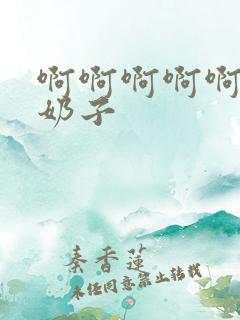 啊啊啊啊啊
奶子
秦香莲
未经同意禁止转载